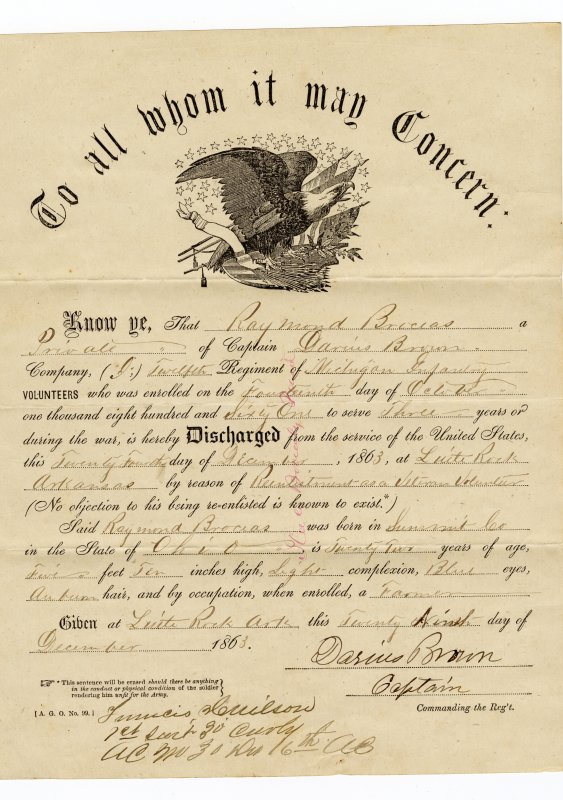 To all whom it may Concern:
Know ye, That Raymond Brocias a
Private of Captain Darius Brown
Company, (G,) Twelfth Regiment of Michigan Infantry
VOLUNTEERS who was enrolled on the Fourteenth day of October
one thousand eight hundred and Sixty One to serve Three years or
during the war, is hereby Discharged from the service of the United States,
this Twenty Fourth day of December, 1863, at Little Rock
Arkansas by reason of Reenlistment as a Veteran Volunteer
(No objection to his being re-enlisted is known to exist.*)
Said Raymond Brocias was born in Summit Co
in the State of Ohio is Twenty Two years of age,
Five feet Ten inches high, Light complexion, Blue eyes,
Auburn hair, and by occupation, when enrolled, a Farmer
Given at Little Rock Ark this Twenty Ninth day of
December 1863.
Darius Brown
Captain
Commanding the Reg't.
☞ * This sentence will be erased should there be anything
in the conduct or physical condition of the soldier
rendering him unfit for the Army.
[A. G. O. No. 99.]
Francis Wilson
1st 30 Cavly
AC 30 6th AC